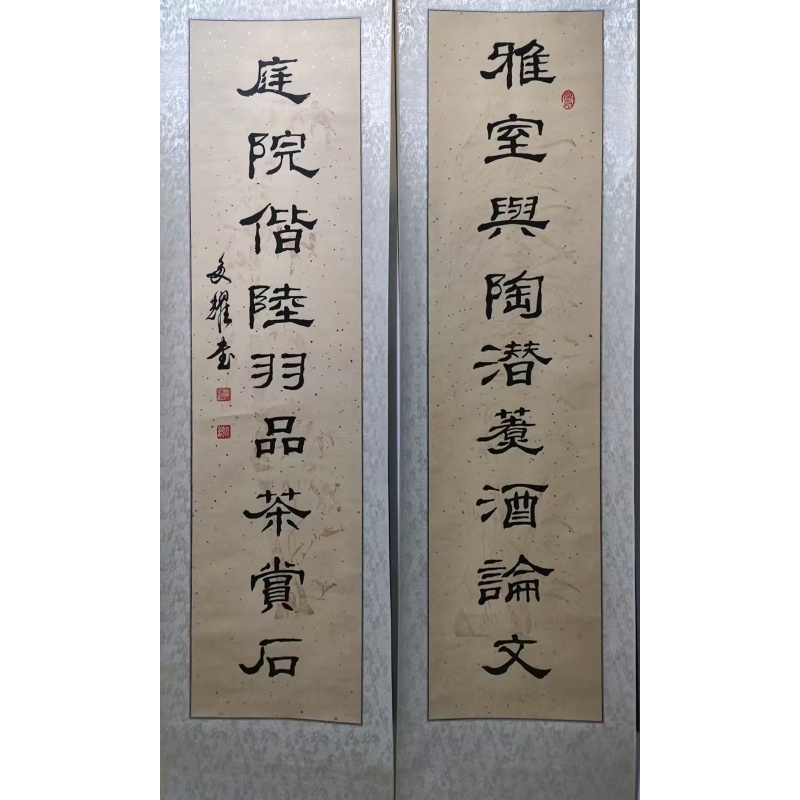 雅室與陶潜煑酒論文
庭院偕陸羽品茶賞石
文耀書